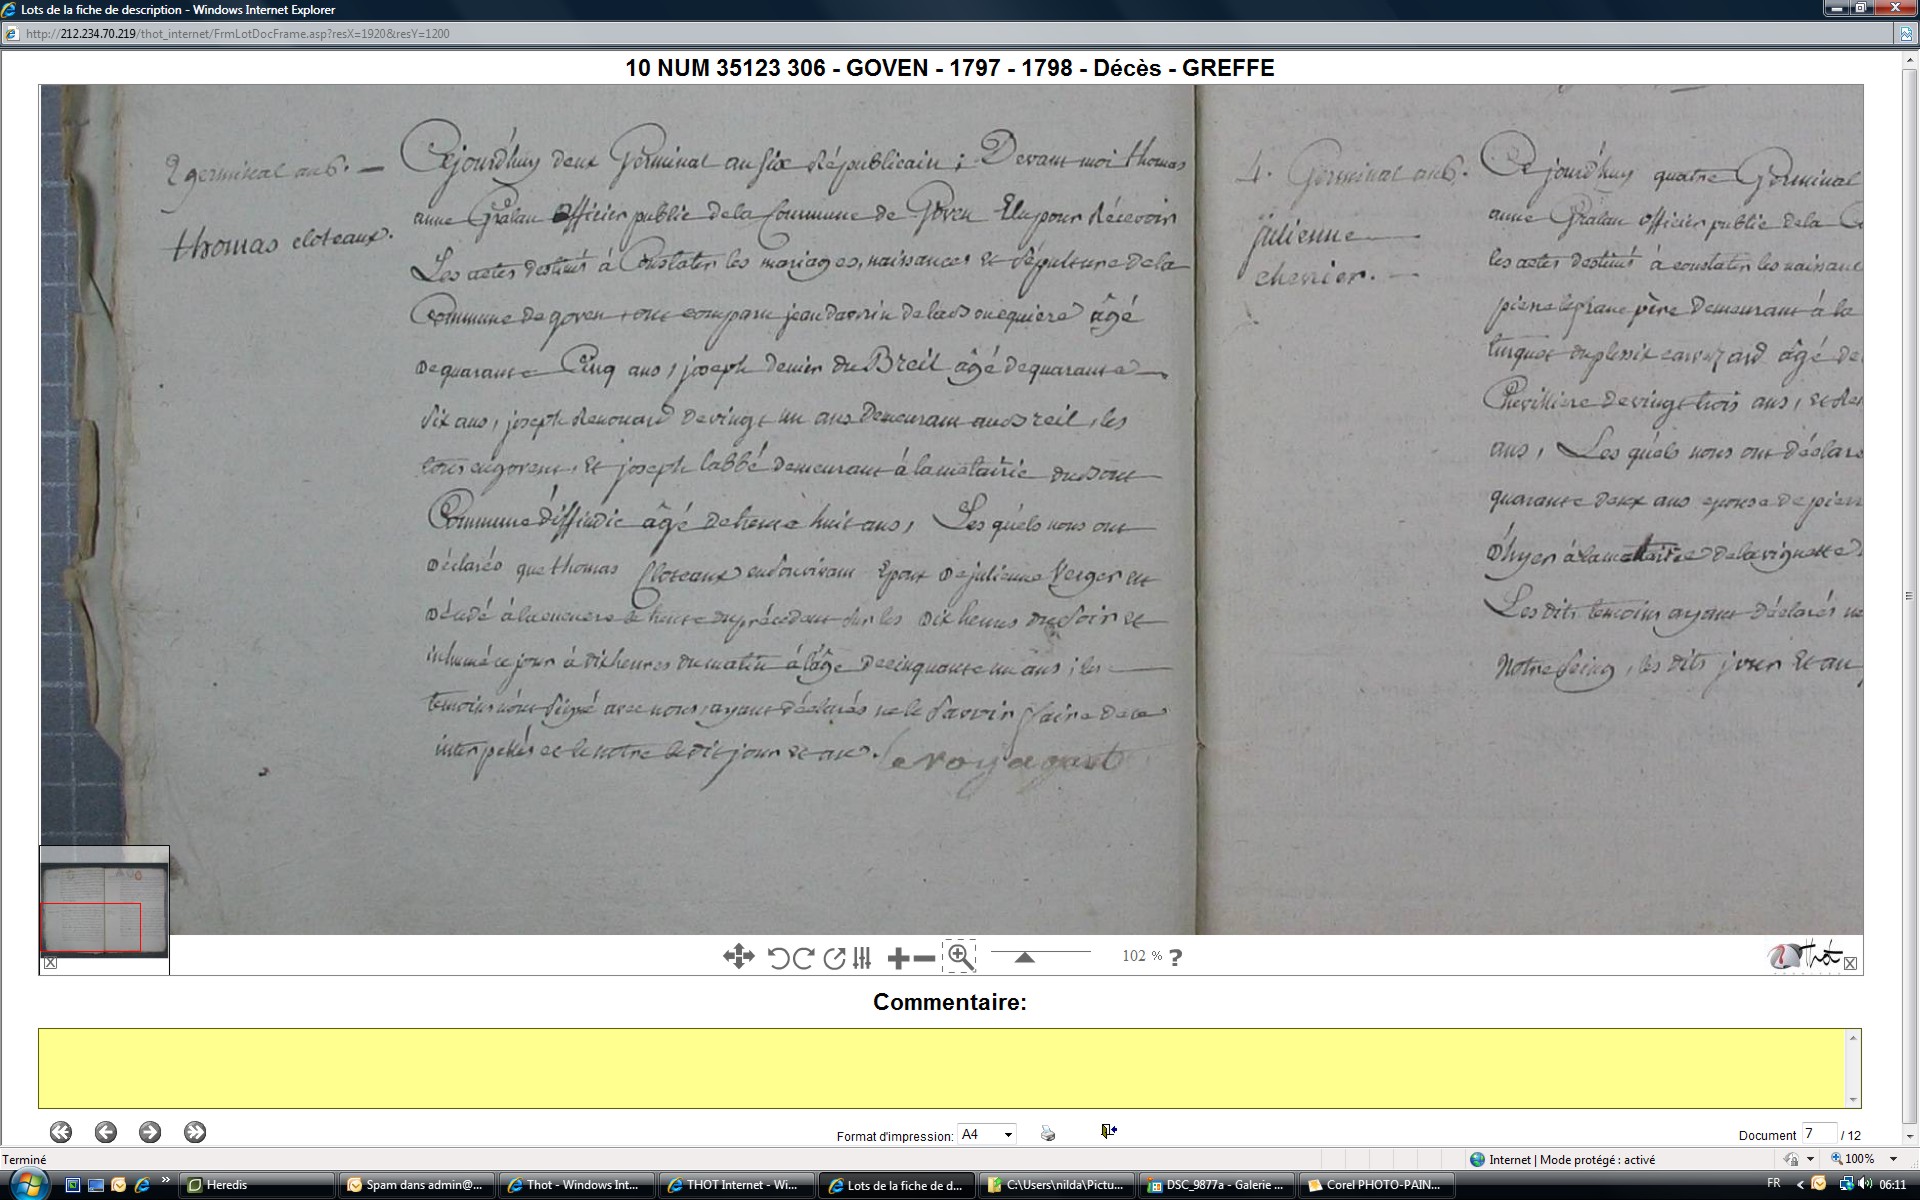 Lots de la fiche de description - Windows Internet Explorer
http://212.234.70.219/thot_internet/FrmLotDocFrame.asp?resX=1920&resY=1200
10 NUM 35123 306 - GOVEN - 1797 - 1798 - Décès - GREFFE
2 germinal an 6. —
thomas cloteaux.
Cejourd'huy deux Germinal an six Républicain ; Devant moi thomas
anne Gralan Officier public de la Commune de Goven Elu pour Récevoir
Les actes destinés à Constater les mariages, naissances et sépulture de la
Commune de goven, ont comparu jean davoin de la âgé
De quarante Cinq ans, joseph denier du Breil âgé de quarante
six ans, joseph Renouard De vingt un ans Demeurant au Breil, les
tous en goven, Et joseph labbé demeurant à la métairie du
Commune d'iffindic âgé de trente huit ans, Les quels nous ont
Déclarés que thomas Cloteaux en son vivant Epoux De julienne Verger est
Décédé à du précédent sur les Dix heures du soir et
inhumé ce jour à dix heures du matin à l'âge De cinquante un ans ; les
temoins n'ont signé avec nous, ayant déclarés ne le savoir faire de ce
interpellés et le notre le dit jour et an.
4. Germinal an 6.
julienne
chevrier.
Cejourd'huy quatre Germinal
anne Gralan officier public de la
les actes destinés à constater les naissanc
pierre lefranc père demeurant à la
du plessix âgé de
de vingt trois ans, et
ans, Les quels nous ont déclaré
quarante deux ans epouse de pierr
D'hyer à la metairie de la vignette
Les dits temoins ayant déclarés ne
Notre seing, les dits jour et an
102 % ?
Thot
Commentaire:
Format d'impression: A4
Document 7 / 12
Terminé
Internet | Mode protégé : activé
100%
Heredis
Spam dans admin@...
Thot - Windows Int...
THOT Internet - Wi...
Lots de la fiche de d...
C:\Users\nilda\Pictu...
DSC_9877a - Galerie ...
Corel PHOTO-PAIN...
FR
06:11